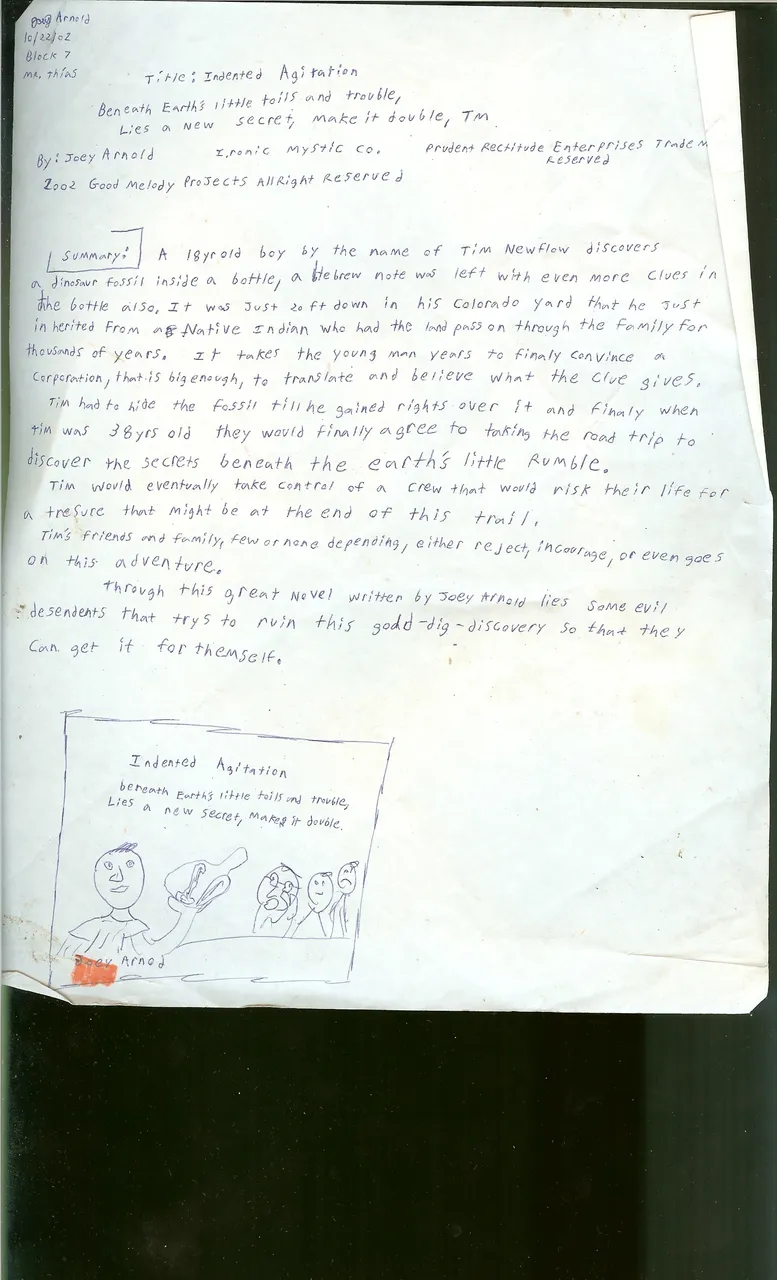 Doug Arnold
10/22/02
Block 7
Mr. Thias
Title: Indented Agitation
Beneath Earth's little toils and trouble,
Lies a new secret, make it double, TM
By: Joey Arnold I.ronic Mystic Co. Prudent Rectitude Enterprises Trade M
Reserved
2002 Good Melody Projects All Right Reserved
Summary: A 18yr old boy by the name of Tim Newflow discovers
a dinosaur fossil inside a bottle, a Hebrew note was left with even more clues in
the bottle also. It was just 20 ft down in his Colorado yard that he just
inherited from a Native Indian who had the land pass on through the family for
thousands of years. It takes the young man years to finaly convince a
corporation, that is big enough, to translate and believe what the clue gives.
Tim had to hide the fossil till he gained rights over it and finaly when
Tim was 38yrs old they would finally agree to taking the road trip to
discover the secrets beneath the earth's little Rumble.
Tim would eventually take control of a crew that would risk their life for
a tresure that might be at the end of this trail.
Tim's friends and family, few or none depending, either reject, incourage, or even goes
on this adventure.
Through this great Novel written by Joey Arnold lies some evil
desendents that trys to ruin this godd-dig-discovery so that they
can get it for themself.
Indented Agitation
beneath Earth's little toils and trouble,
Lies a new secret, makes it double.
Joey Arnod